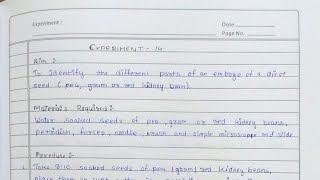 Experiment :
Date
Page No.
EXPERIMENT - 14
Aim :
To Identify the different parts of an embryo of a dicot
seed ( pea, gram or red kidney bean).
Materials Required :
Water soaked seeds of pea, gram or red kidney beans,
petridish, forceps, needle, brush and simple microscope and slide
Procedure :
1. Take 5-10 soaked seeds of pea /gram/ red kidney beans,